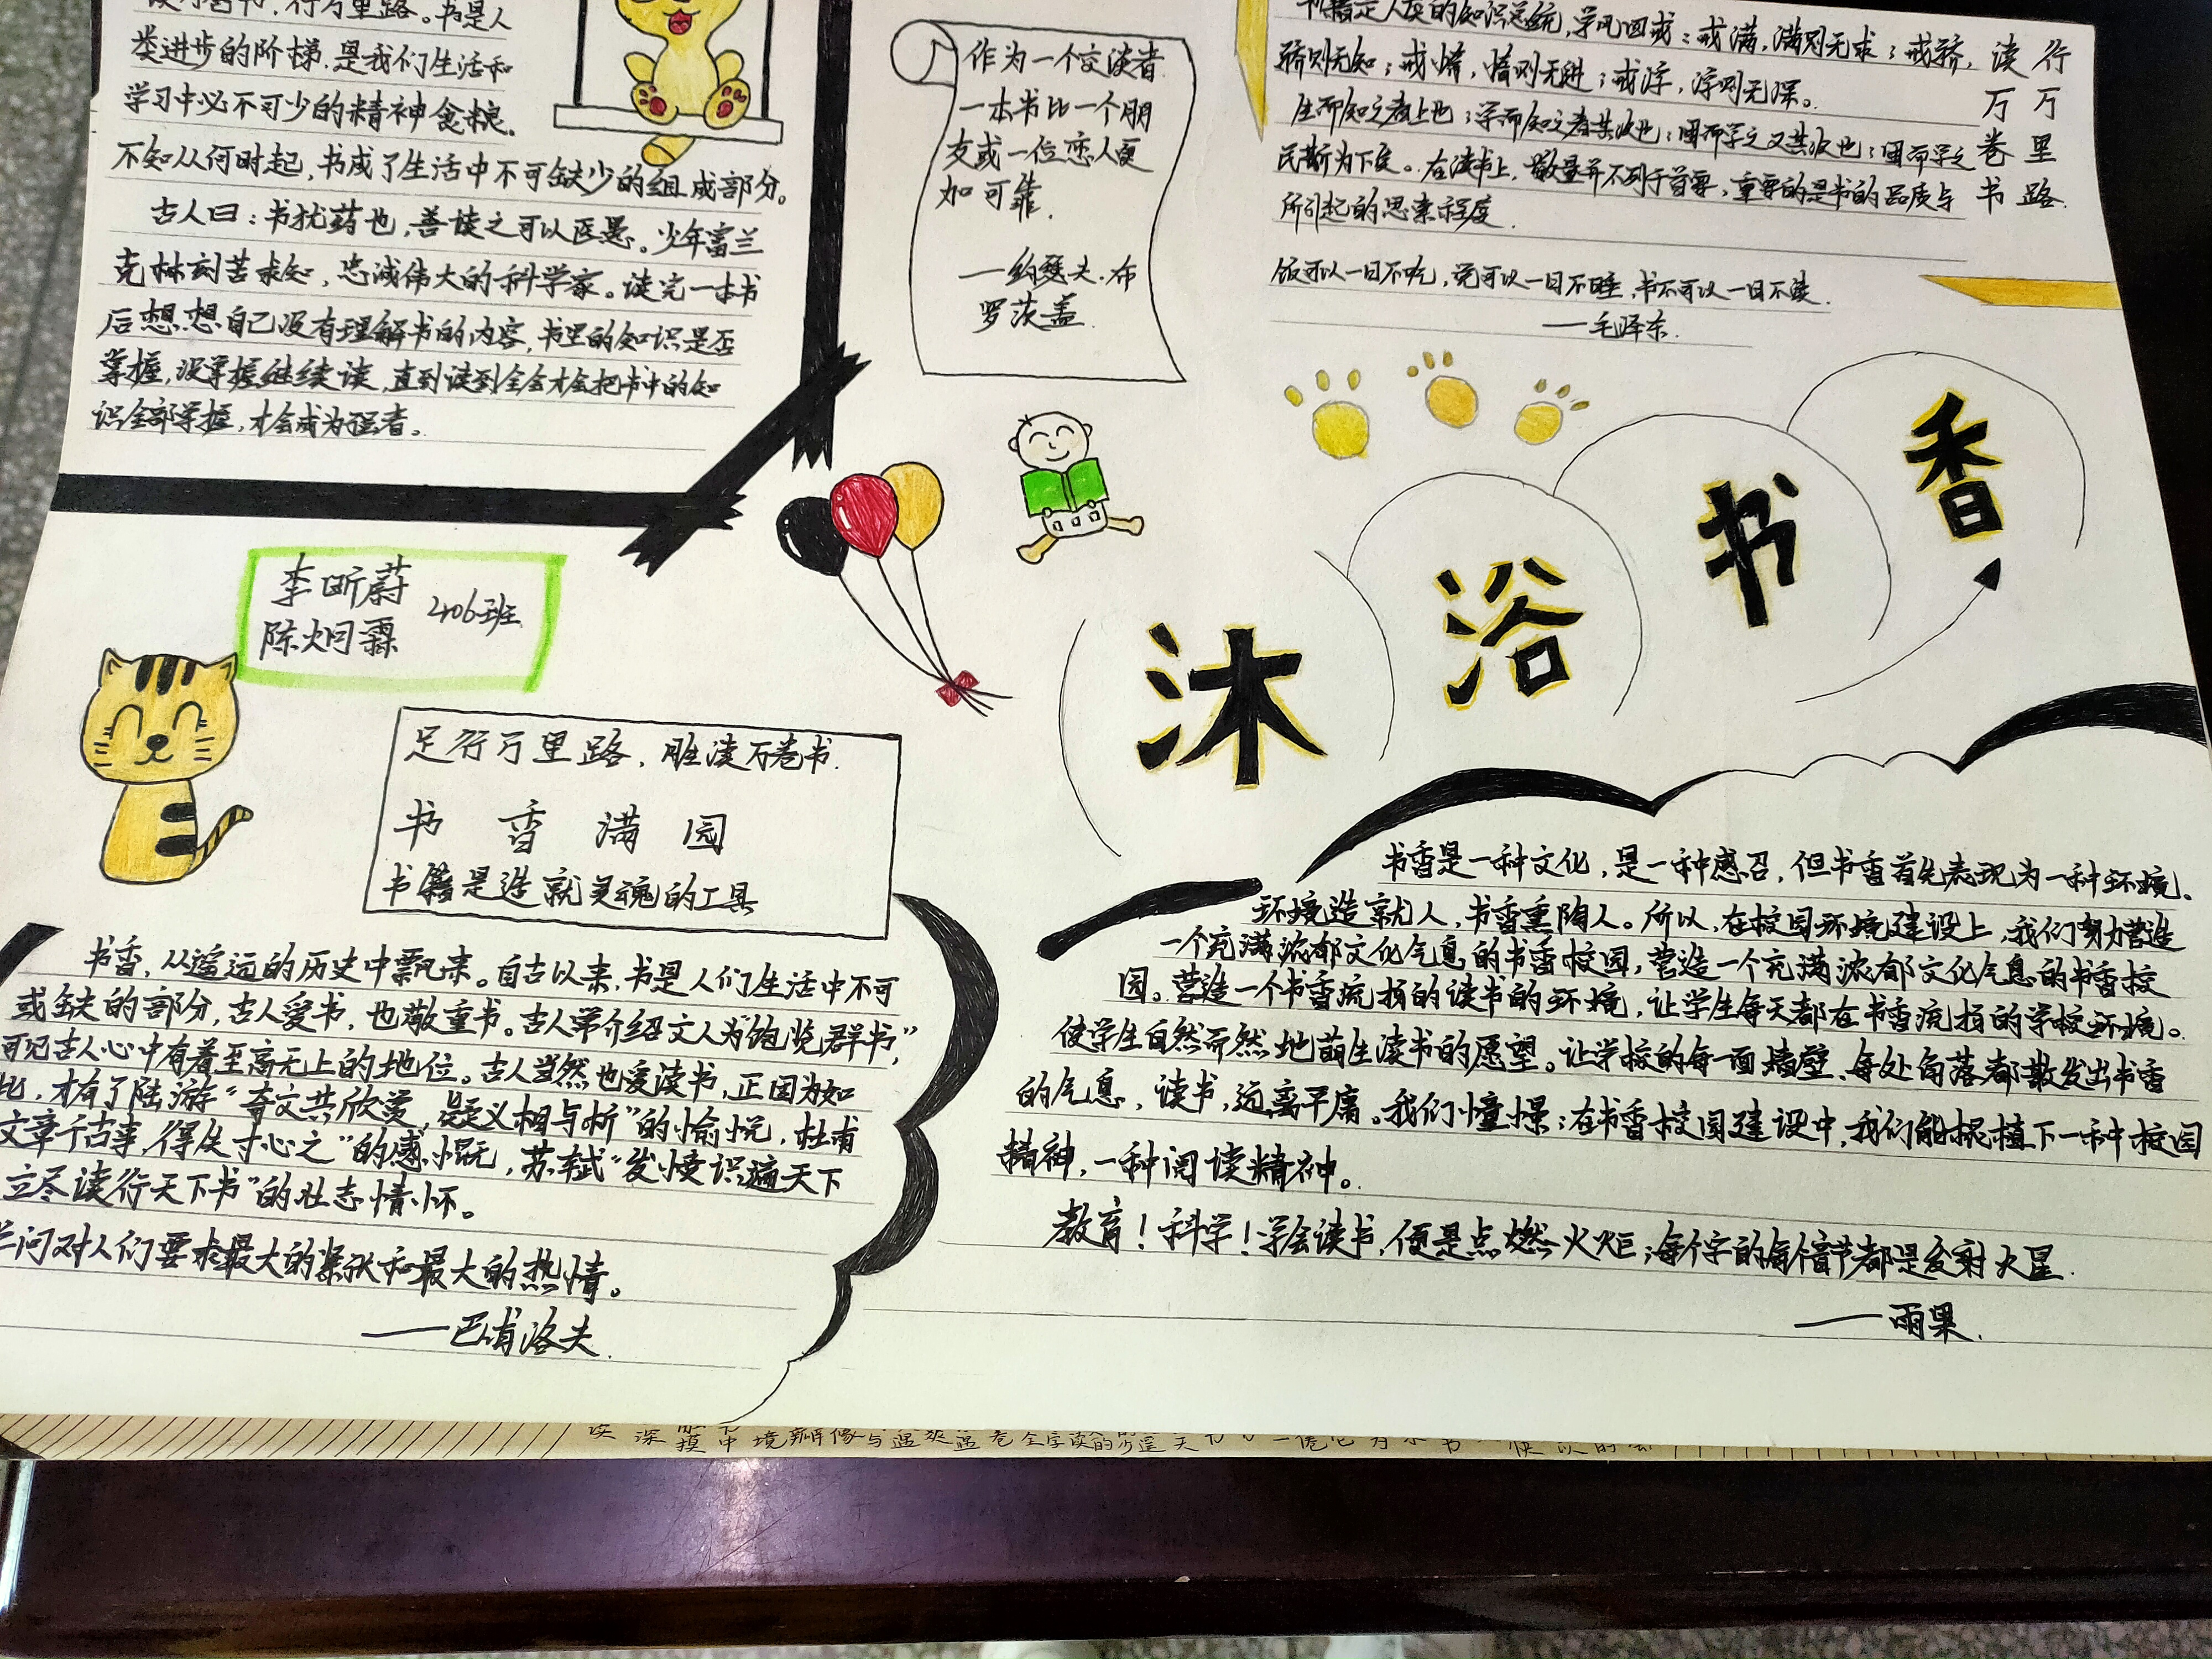 读万卷书，行万里路。书是人
类进步的阶梯，是我们生活和
学习中必不可少的精神食粮。
不知从何时起，书成了生活中不可缺少的组成部分。
古人曰：书犹药也，善读之可以医愚。少年富兰
克林刻苦求知，忠诚伟大的科学家。读完一本书
后想想自己没有理解书的内容，书里的知识是否
掌握，没掌握继续读，直到读到全会才会把书中的知
识全部掌握，才会成为强者。
作为一个交谈者
一本书比一个朋
友或一位恋人更
加可靠.
——约瑟夫.布
罗茨盖.
书籍是人类的知识总统，学风四戒：戒满，满则无求；戒骄，
骄则无知；戒惰，惰则无进；戒浮，浮则无深。
生而知之者上也；学而知之者其次也；困而学之又其次也；困而学之
民斯为下矣。在读书上，数量并不列于首要，重要的是书的品质与
所引起的思索程度.
饭可以一日不吃，觉可以一日不睡，书不可以一日不读.
——毛泽东.
行万里路.
读万卷书
沐浴书香
李昕蔚
陈炯霖
2406班
足行万里路，胜读万卷书.
书香满园
书籍是造就灵魂的工具
书香，从遥远的历史中飘来。自古以来，书是人们生活中不可
或缺的部分，古人爱书，也敬重书。古人常介绍文人为“饱览群书”，
可见古人心中有着至高无上的地位。古人当然也爱读书，正因为如
此，才有了陆游“奇文共欣赏，疑义相与析”的愉悦，杜甫
文章千古事，得失寸心之”的感慨，苏轼“发愤识遍天下
立尽读行天下书”的壮志情怀。
问对人们要求最大的紧张和最大的热情。
——巴甫洛夫.
书香是一种文化，是一种感召，但书香首先表现为一种环境。
环境造就人，书香熏陶人。所以，在校园环境建设上，我们努力营造
一个充满浓郁文化气息的书香校园，营造一个充满浓郁文化气息的书香校
园。营造一个书香流损的读书的环境，让学生每天都在书香流损的学校环境。
使学生自然而然地萌生读书的愿望。让学校的每一面墙壁、每处角落都散发出书香
的气息，读书，远离平庸。我们憧憬：在书香校园建设中，我们能根植下一种校园
精神，一种阅读精神。
教育！科学！学会读书，便是点燃火炬；每个字的每个音节都是发射火星.
——雨果.